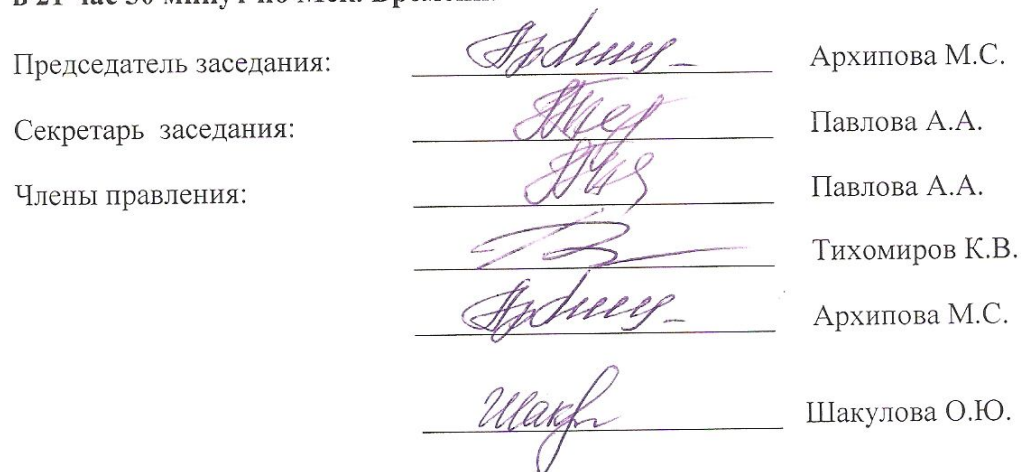 в 21 час 30 минут по Мск. Времени.
Председатель заседания: Архипова М.С.
Секретарь заседания: Павлова А.А.
Члены правления: Павлова А.А.
Тихомиров К.В.
Архипова М.С.
Шакулова О.Ю.